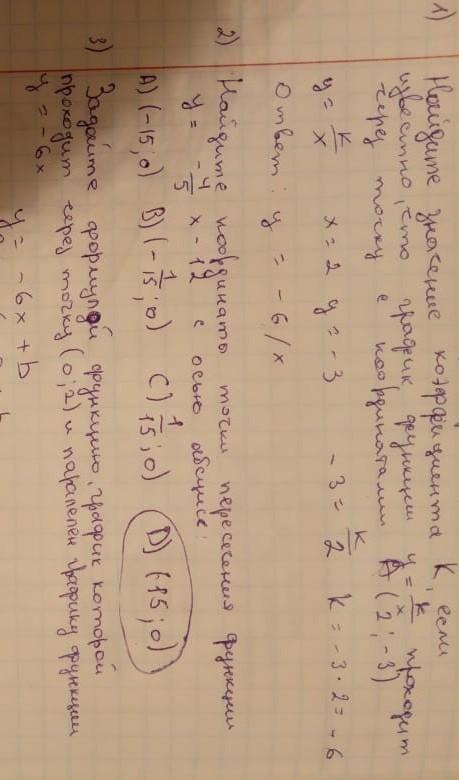 1) Найдите значение коэффициента K, если
известно, что график функции y = k/x проходит
через точку с координатами A (2; -3)
y = k/x x = 2 y = -3 -3 = k/2 k = -3·2 = -6
Ответ: y = -6/x
2) Найдите координаты точки пересечения функции
y = -4/5 x - 12 с осью абсцисс:
A) (-15; 0) B) (-1/15; 0) C) 1/15; 0) D) (-15; 0)
3) Задайте формулой функцию, график которой
проходит через точку (0; 2) и паралелен графику функции
y = -6x
y = -6x + b